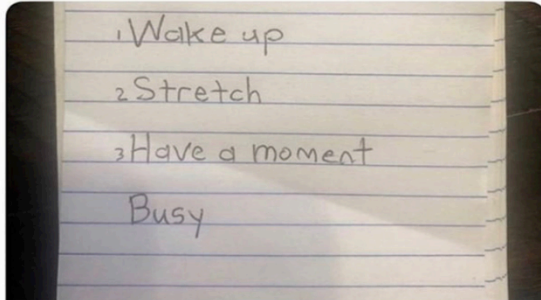 1 Wake up
2 Stretch
3 Have a moment
Busy